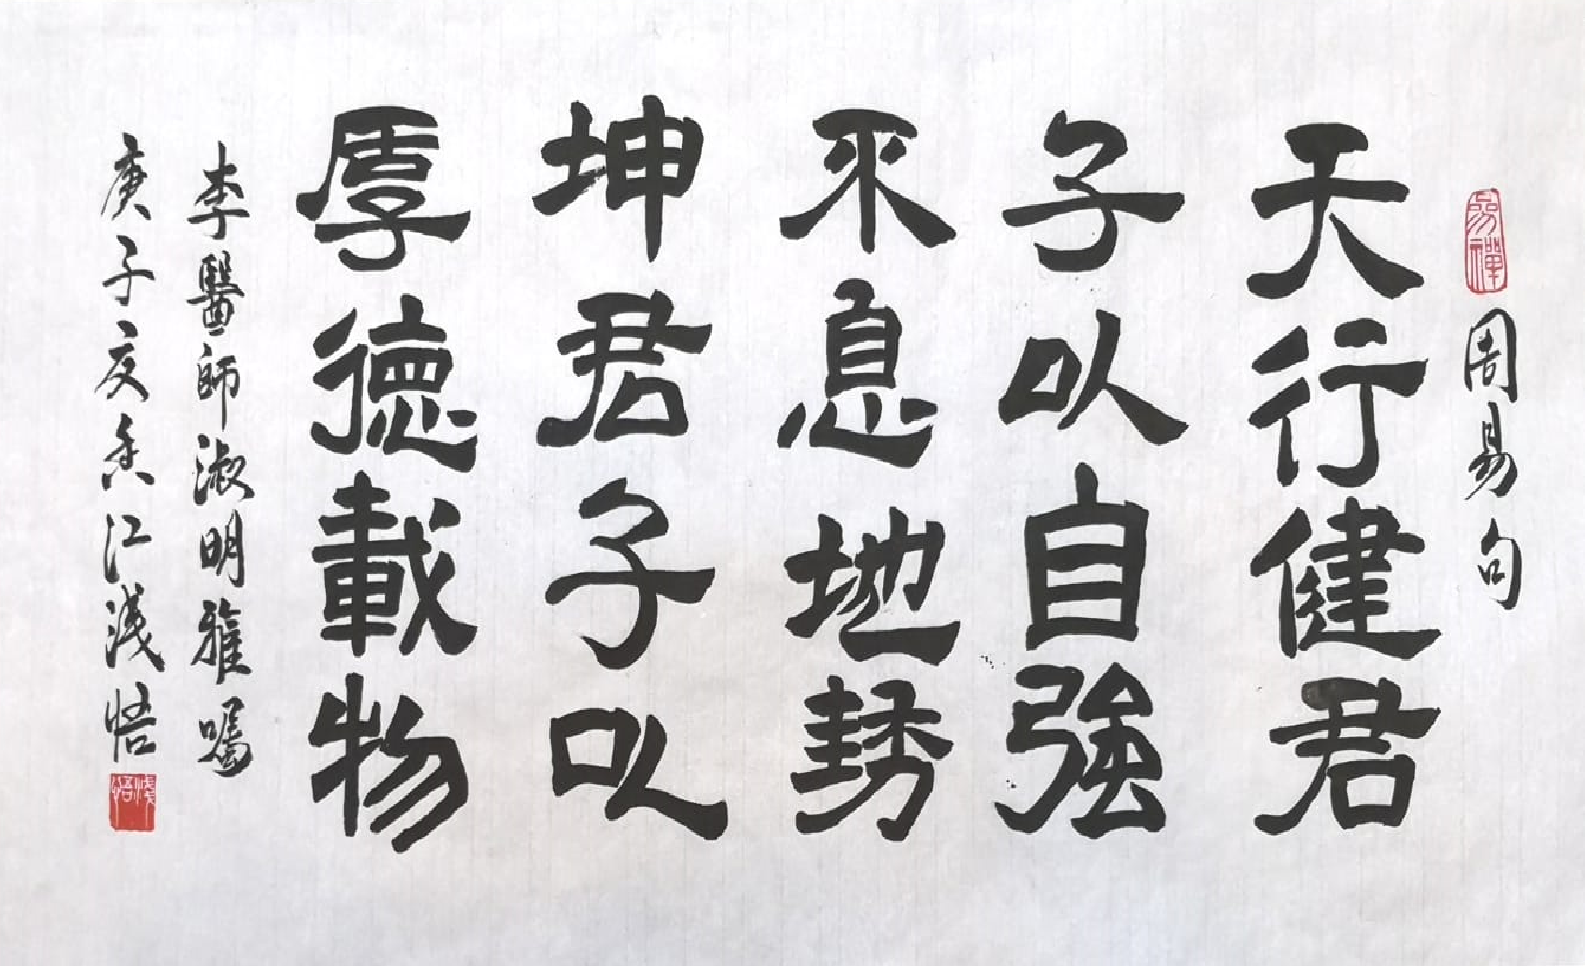 周易句
天行健君
子以自強
不息地勢
坤君子以
厚德載物
李醫師淑明雅囑
庚子夏香江淺悟
淺悟